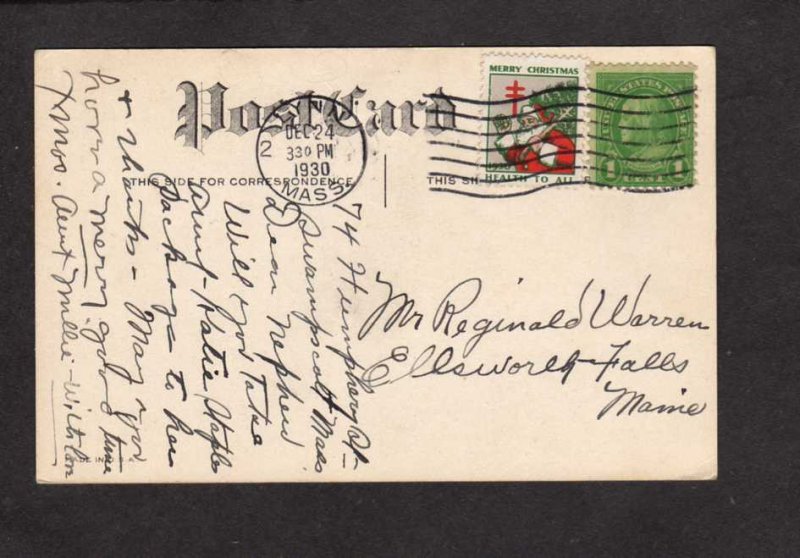 Post Card
LYNN
DEC 24
330 PM
1930
MASS.
2
MERRY CHRISTMAS
HEALTH TO ALL
UNITED STATES POSTAGE
1 1
THIS SIDE FOR CORRESPONDENCE
THIS SI
74 Humphrey St
Swampscott Mass
Dear Nephew
Will you take
Aunt Katie Staples
package to her
& thanks - May you
have a merry good time
Xmas. Aunt Millie - With love
Mr Reginald Warren
Ellsworth-Falls
Maine